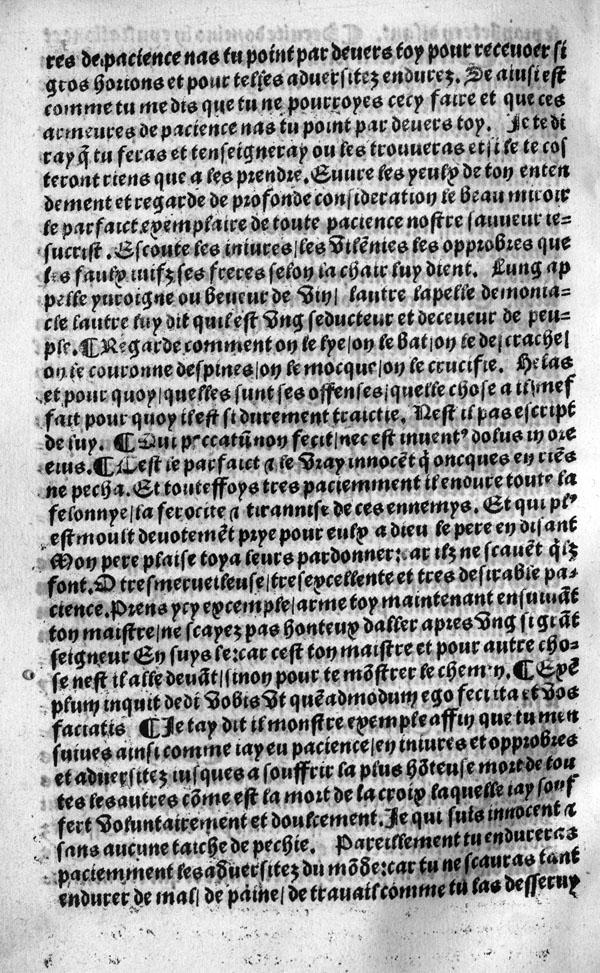 res de pacience nas tu point par devers toy pour recevoer si
gros horions et pour telles adversitez endurez. Se ainsi est
comme tu me dis que tu ne pourroyes cecy faire et que ces
armeures de pacience nas tu point par devers toy. Je te di
ray q̃ tu feras et tenseigneray ou les trouveras et si le te cos
teront riens que a les prendre. Euvre les yeulx de ton enten
dement et regarde de profonde consideration le beau miroir
le parfaict exemplaire de toute pacience nostre sauveur ie-
sucrist. Escoute les iniures/les vilẽnies les opprobres que
les faulx iuifz ses freres selon la chair luy dient. Lung ap
pelle yvroigne ou beveur de vin/ lautre lapelle demonia-
cle lautre luy dit quil est ung seducteur et deceveur de peu-
ple. ¶Regarde comment on le lye/on le bat/on le de/crache/
on le couronne despines/on le mocque/on le crucifie. Helas
et pour quoy/quelles sunt ses offenses/quelle chose a il mef
fait pour quoy il est si durement traictie. Nest il pas escript
de luy. ¶Qui peccatũ non fecit/nec est invent⁹ dolus in ore
eius. ¶Cest le parfaict ⁊ le vray innocẽt q̃ oncques en riẽs
ne pecha. Et touteffoys tres paciemment il endure toute la
felonnye/la ferocite ⁊ tirannise de ces ennemys. Et qui pl⁹
est moult devotemẽt prye pour eulx a dieu le pere en disant
Mon pere plaise toy a leurs pardonner: car ilz ne scavẽt q̃lz
font. O tresmerveileuse/tresexcellente et tres desirable pa-
cience. Prens ycy excemple/arme toy maintenant ensuivãt
ton maistre/ne scayez pas honteux daller apres ung si grãt
seigneur En suys le: car cest ton maistre et pour autre cho-
se nest il alle devãt/sinon pour te mõstrer le chemyn. ¶Exẽ
plum inquit dedi vobis ut quẽadmodum ego feci ita et vos
faciatis ¶Je tay dit il monstre exemple affin que tu men
suives ainsi comme iay eu pacience/en iniures et opprobres
et adversitez iusques a souffrir la plus hõteuse mort de tou
tes les autres cõme est la mort de la croix laquelle iay souf
fert voluntairement et doulcement. Je qui suis innocent ⁊
sans aucune taiche de pechie. Pareillement tu endureras
paciemment les adversitez du mõde: car tu ne scauras tant
endurer de mal/ de paine/ de travail comme tu las desseruy